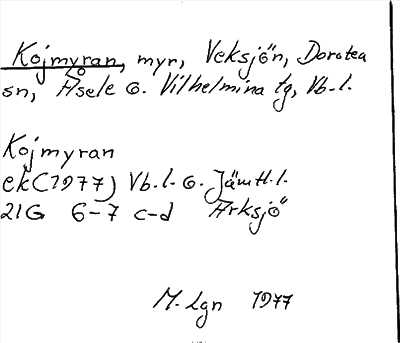 Kojmyran, myr, Veksjön, Dorotea
sn, Åsele o. Vilhelmina tg, Vb.l.
Kojmyran
ek (1977) Vb.l. o. Jämtl.l.
21G 6-7 c-d Arksjö
M. Lgn 1977